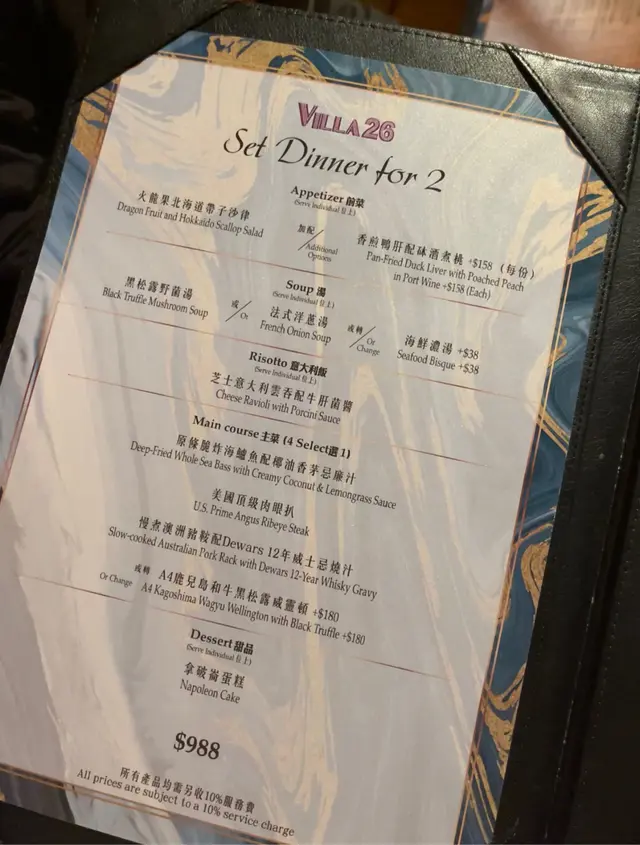 VILLA 26
Set Dinner for 2
Appetizer 前菜
(Serve Individual 位上)
火龍果北海道帶子沙律
Dragon Fruit and Hokkaido Scallop Salad
加配
/
Additional
Options
香煎鴨肝配砵酒煮桃 +$158 (每份)
Pan-Fried Duck Liver with Poached Peach
in Port Wine +$158 (Each)
Soup 湯
(Serve Individual 位上)
黑松露野菌湯
Black Truffle Mushroom Soup
或
/
Or
法式洋蔥湯
French Onion Soup
或轉
/
Or
Change
海鮮濃湯 +$38
Seafood Bisque +$38
Risotto 意大利飯
(Serve Individual 位上)
芝士意大利雲吞配牛肝菌醬
Cheese Ravioli with Porcini Sauce
Main course主菜 (4 Select選1)
原條脆炸海鱸魚配椰油香茅忌廉汁
Deep-Fried Whole Sea Bass with Creamy Coconut & Lemongrass Sauce
美國頂級肉眼扒
U.S. Prime Angus Ribeye Steak
慢煮澳洲豬鞍配Dewars 12年威士忌燒汁
Slow-cooked Australian Pork Rack with Dewars 12-Year Whisky Gravy
或轉
Or Change
A4鹿兒島和牛黑松露威靈頓 +$180
A4 Kagoshima Wagyu Wellington with Black Truffle +$180
Dessert 甜品
(Serve Individual 位上)
拿破崙蛋糕
Napoleon Cake
$988
所有產品均需另收10%服務費
All prices are subject to a 10% service charge